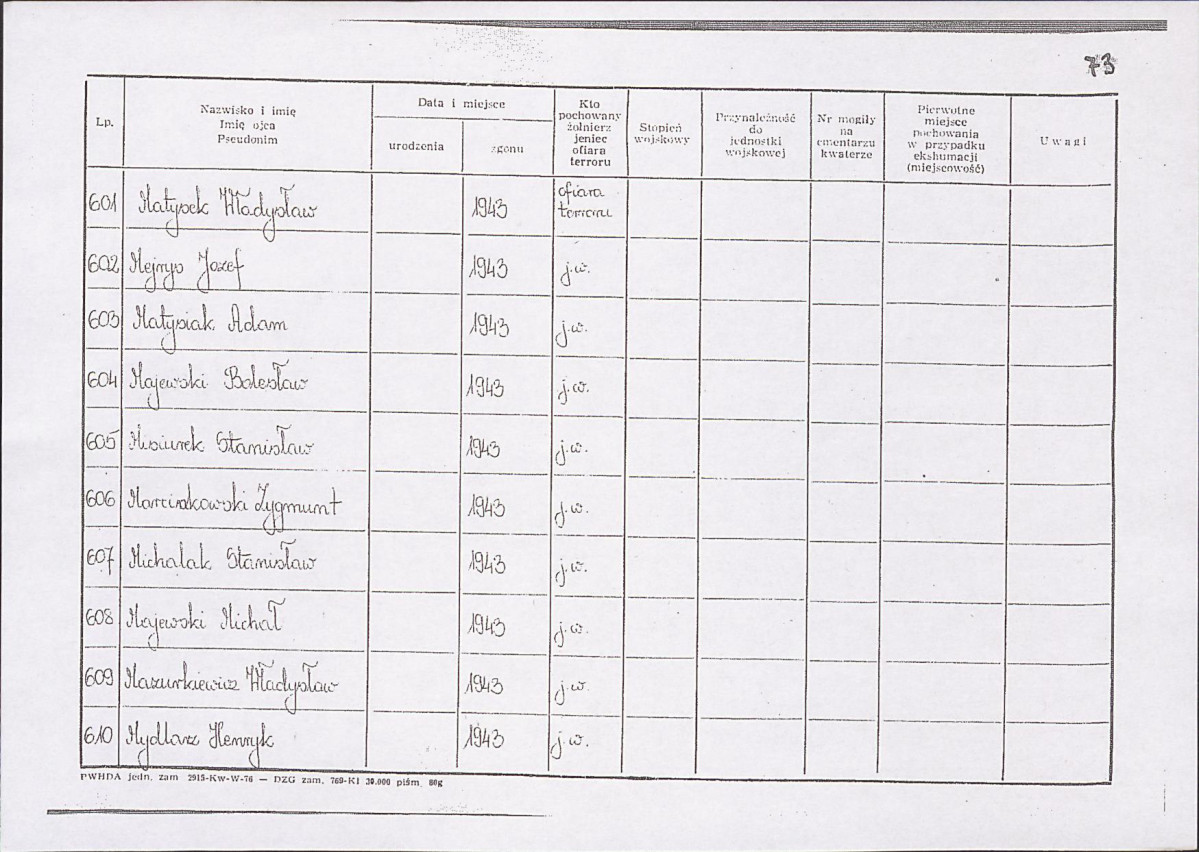 73
Lp.
Nazwisko i imię
Imię ojca
Pseudonim
Data i miejsce
urodzenia
zgonu
Kto
pochowany
żołnierz
jeniec
ofiara
terroru
Stopień
wojskowy
Przynależność
do
jednostki
wojskowej
Nr mogiły
na
cmentarzu
kwaterze
Pierwotne
miejsce
pochowania
w przypadku
ekshumacji
(miejscowość)
Uwagi
601 Matysek Władysław 1943 ofiara
terroru
602 Józef 1943 j.w.
603 Matysiak Adam 1943 j.w.
604 Majewski Bolesław 1943 j.w.
605 Misiurek Stanisław 1943 j.w.
606 Marciakowski Zygmunt 1943 j.w.
607 Michalak Stanisław 1943 j.w.
608 Majewski Michał 1943 j.w.
609 Mazurkiewicz Władysław 1943 j.w.
610 Mydlarz Henryk 1943 j.w.
PWHDA jedn. zam 2915-Kw-W-76 — DZG zam. 769-Kl 30.000 piśm. 80g